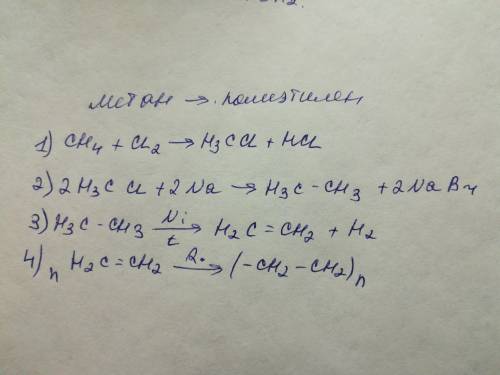 Метан → полиэтилен
1) CH₄ + Cl₂ → H₃CCl + HCl
2) 2H₃CCl + 2Na → H₃C-CH₃ + 2NaBr
3) H₃C-CH₃ Ni t → H₂C=CH₂ + H₂
4) n H₂C=CH₂ R• → (-CH₂-CH₂)n